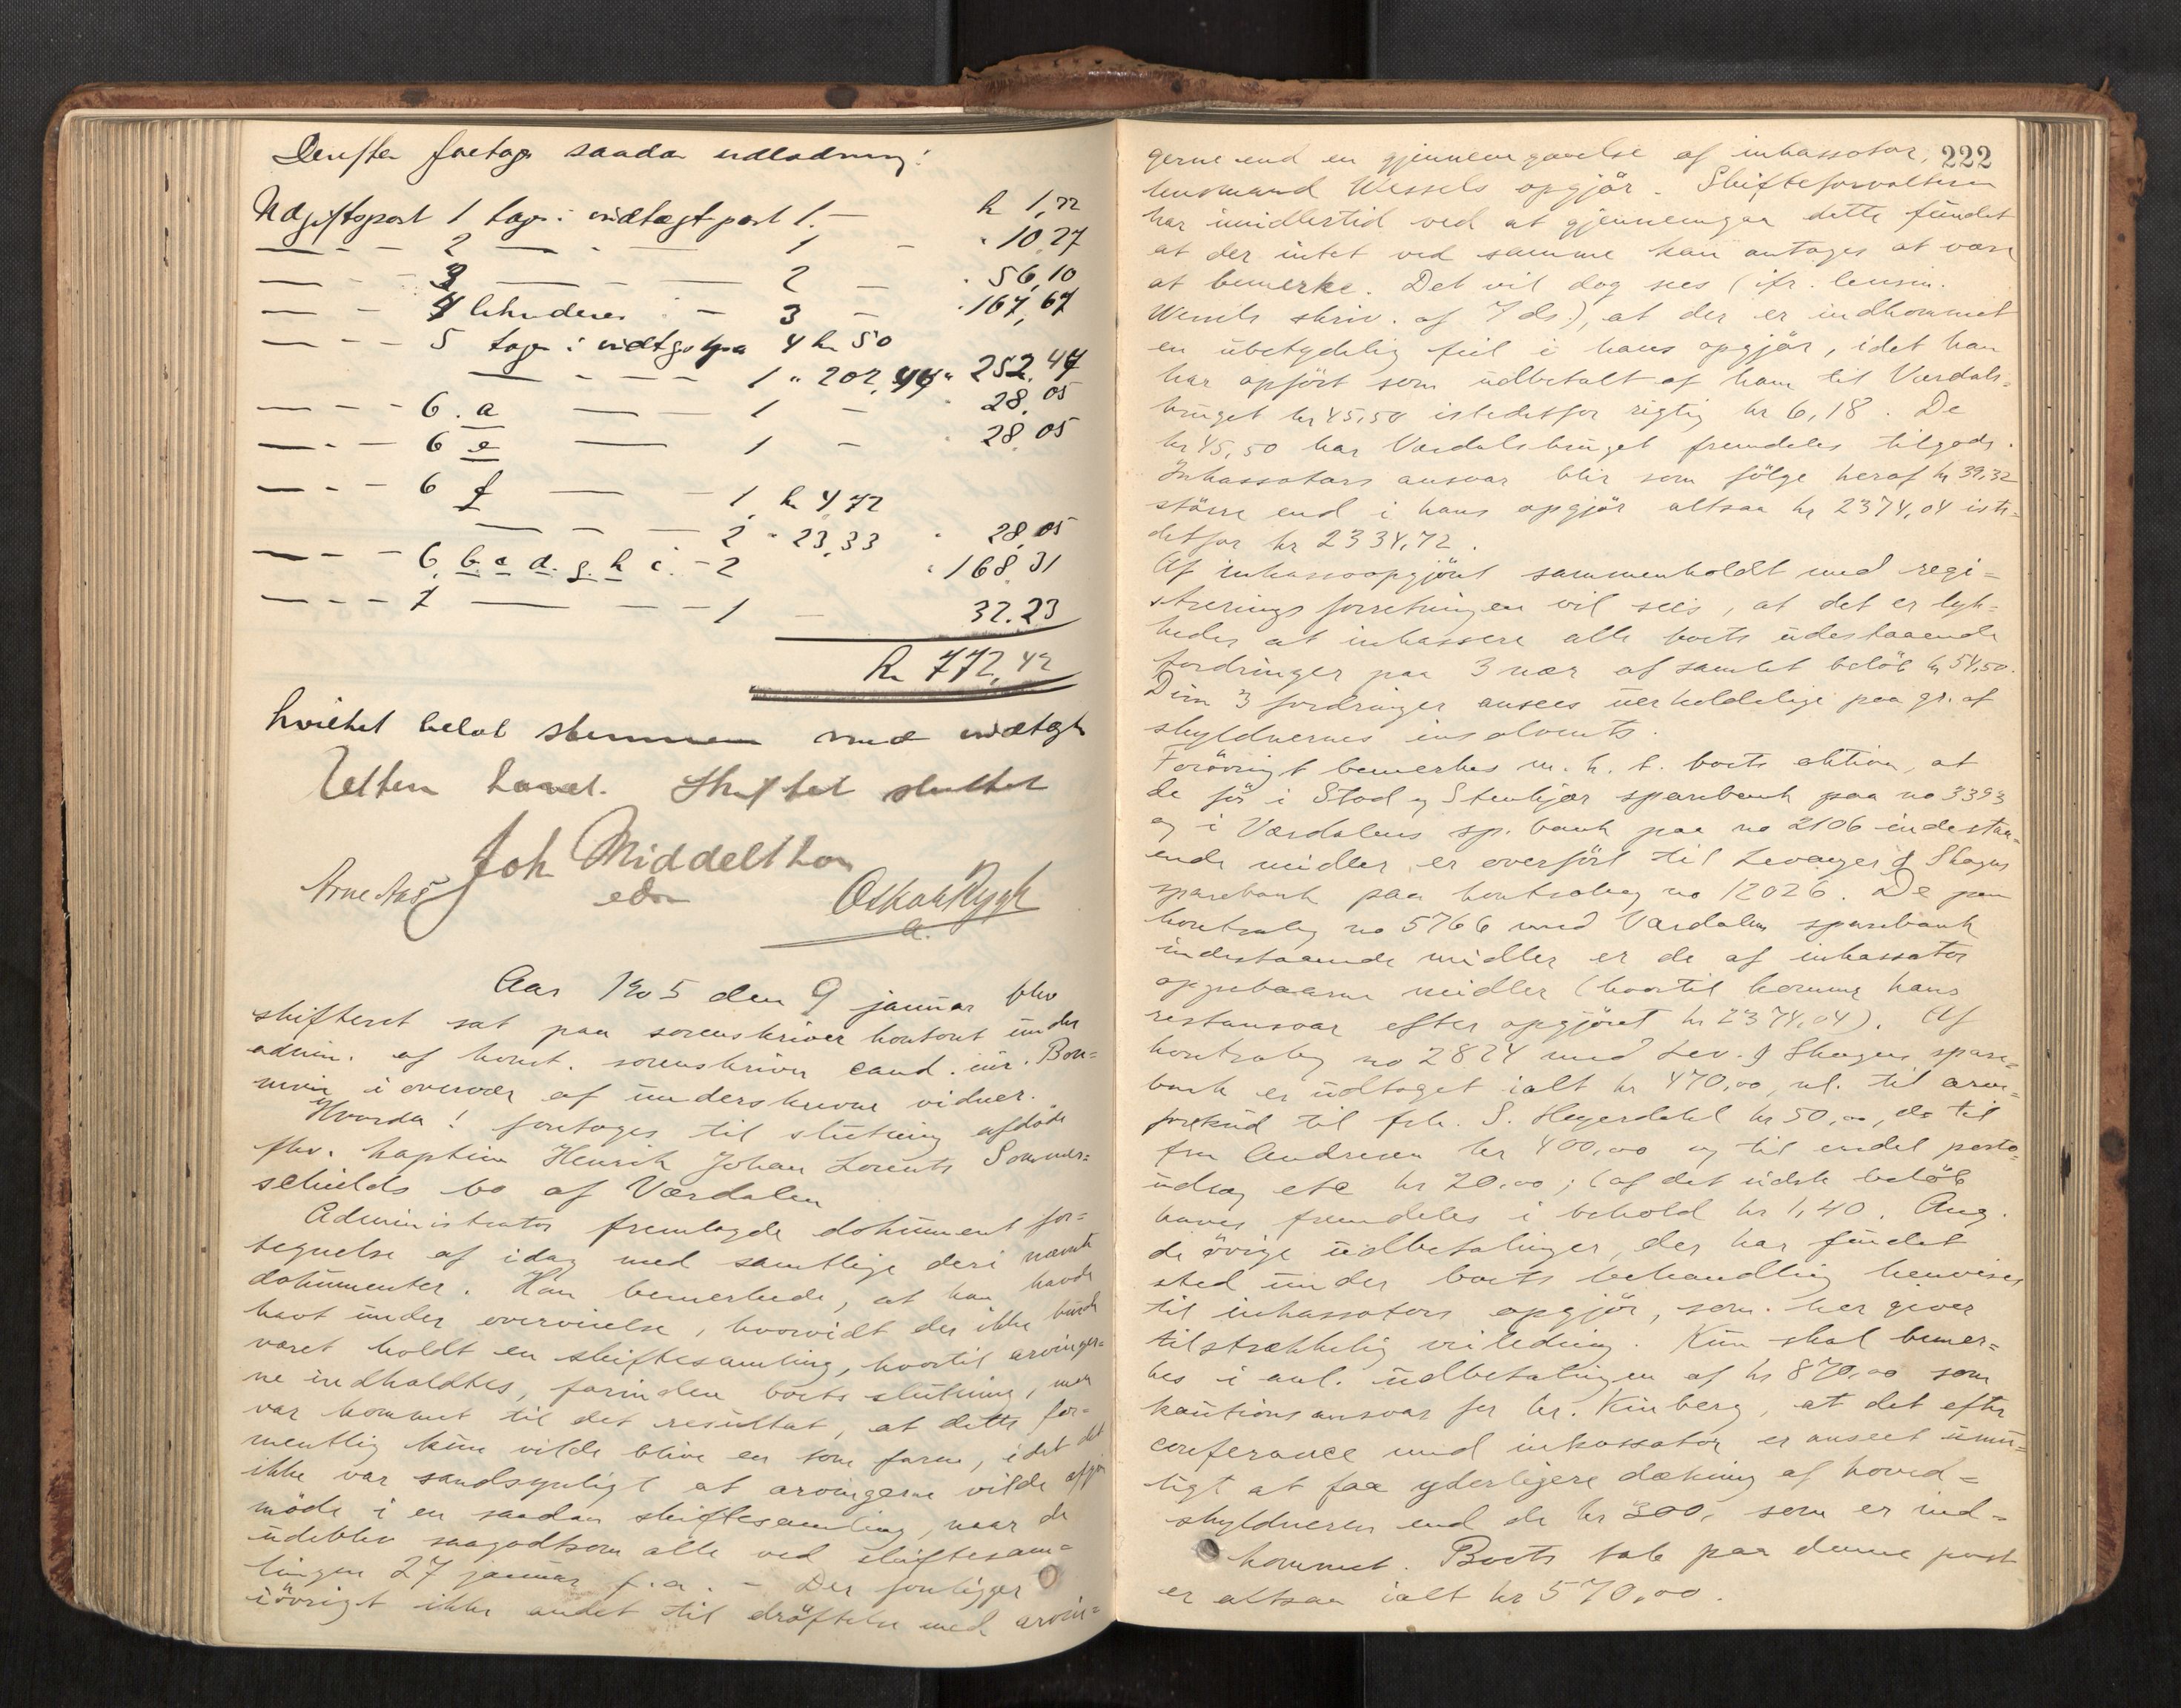 Derefter foretoges saadan udlodning:
Udgiftspost 1 tages i indtægtpost 1. — kr 1,22
— — - 2 — - — 1 — " 10.27
— — - 3 — — 2 — " 56,10
— — 4 likvideres — 3 — " 167,67
— - - 5 tages i 4 kr 50
— - - — 1 " 202,44 " 252.44
— - - 6. a — 1 — " 28.05
— - - 6 e — 1 — " 28.05
— - - 6 f — - 1. kr 4 72
— - - — 2 " 23,33 " 28.05
— - - 6. b. c. d. g. h i. - 2 " 168.31
— - - 7 — — - 1 — 32.23
kr 772,42
hvilket beløb stemmer med indtægt
Retten hævet. Skiftet sluttet
Joh Middelthon
edm
Arne Aas
Oskar Rygh
a.
Aar 1905 den 9 januar blev
skifteret sat paa sorenskriver kontoret under
admin. af konst. sorenskriver cand. jur. Bon=
nevie i overvær af underskrevne vidner.
Hvorda! foretoges til slutning afdöde
fhv. kaptein Henrik Johan Lorents Sommer=
schields bo af Værdalen
Administrator fremlagde dokument for=
tegnelse af idag med samtlige deri nævnte
dokumenter. Han bemerkede, at han havde
havt under overveielse, hvorvidt der ikke burde
været holdt en skiftesamling, hvortil arvinger=
ne indkaldtes, forinden boets slutning, men
var kommet til det resultat, at dette for=
mentlig kun vilde blive en tom form, idet det
ikke var sandsynligt at arvingerne vilde
möde i en saadan skiftesamling, naar de
udeblev saagodtsom alle ved skiftesam=
lingen 27 januar f.a. - Der foreligger
iövrigt ikke andet til dröftelse med arvin=
222
gerne end en gjennemgaaelse af inkassator,
lensmand Wessels opgjör. Skifteforvalteren
har imidlertid ved at gjennemgaa dette fundet
at der intet ved samme kan antages at være
at bemerke. Det vil dog sees (jfr. lensm.
Wessels skriv. af 7 ds.), at der er indkommet
en ubetydelig feil i hans opgjör, idet han
har opfört som udbetalt af ham til Værdals=
bruget kr 45,50 istedetfor rigtig kr 6,18. De
kr 45,50 har Værdalsbruget fremdeles tilgode.
Inkassators ansvar blir som fölge heraf kr 39,32
större end i hans opgjör altsaa kr 2374,04 iste=
detfor kr 2334,72.
Af inkassoopgjöret sammenholdt med regi=
streringsforretningen vil sees, at det er lyk=
kedes at inkassere alle boets udestaaende
fordringer paa 3 nær af samlet belöb kr 54,50.
Disse 3 fordringer ansees uerholdelige paa gr. af
skyldnernes insolvents.
Forövrigt bemerkes m. h. t. boets aktiva, at
de för i Stod og Stenkjær sparebank paa no 3393
og i Værdalens sp. bank paa no 2106 indestaa=
ende midler er overfört til Levanger & Skogns
sparebank paa kontrabog no 12026. De paa
kontrabog no 5766 med Værdalens sparebank
indestaaende midler er de af inkassator
oppebaarne midler (hvortil kommer hans
restansvar efter opgjöret kr 2374,04). Af
kontrabog no 2824 med Lev. & Skogns spare=
bank er udtaget ialt kr 470,00, nl. til arve=
forskud til frk. S. Heyerdahl kr 50,00, do til
fru Andresen kr 400,00 og til endel porto
udlæg etc kr 20.00; (af det sidste belöb
haves fremdeles i behold kr 1,40. Ang.
de övrige udbetalinger, der har fundet
sted under boets behandling henvises
til inkassators opgjör, som. her giver
tilstrækkelig veiledning. Kun skal bemer=
kes i anl. udbetalingen af kr 870,00 som
kautionsansvar for hr. Kinberg, at det efter
conferance med inkassator er anseet unyt=
tigt at faa yderligere dækning af hoved=
skyldneren end de kr 300, som er ind=
kommet. Boets tab paa denne post
er altsaa ialt kr 570,00.